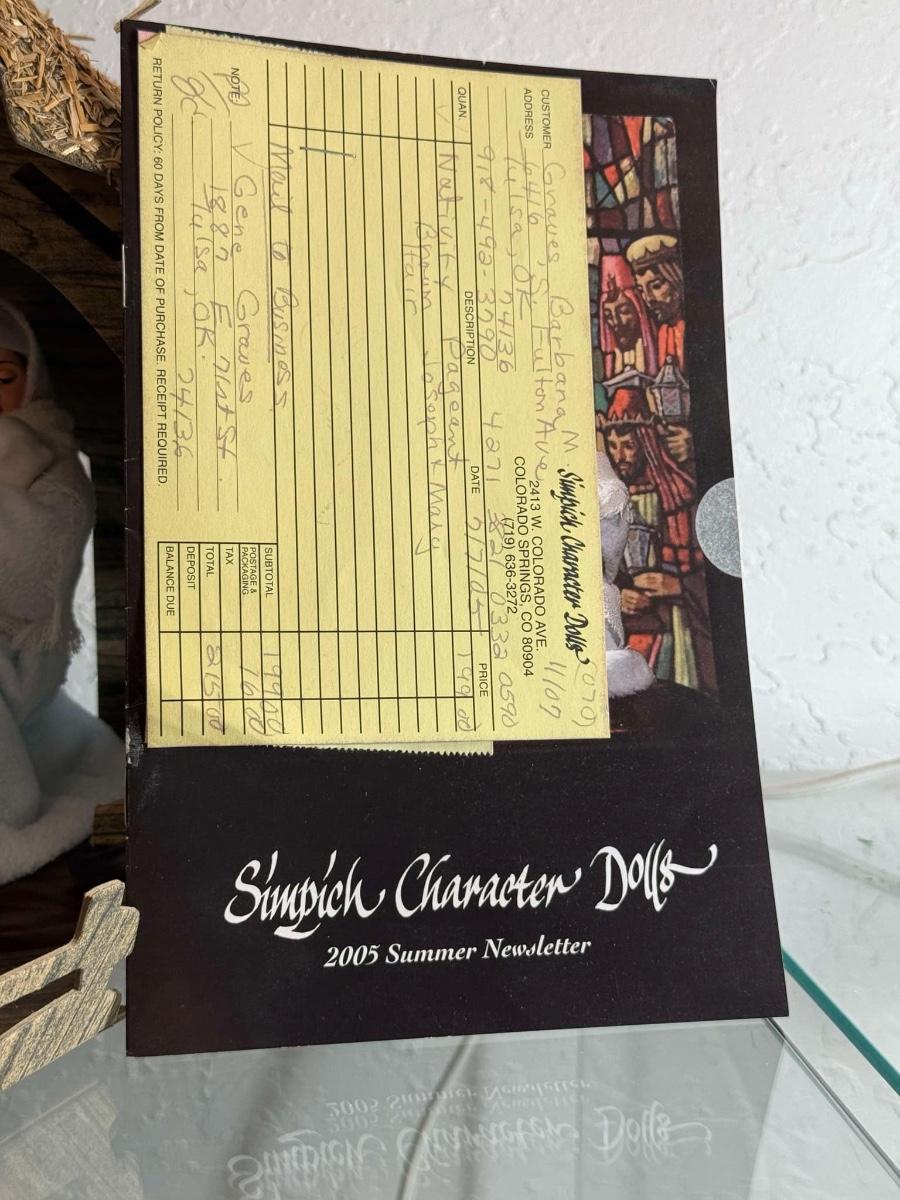 Simpich Character Dolls
2413 W. COLORADO AVE.
COLORADO SPRINGS, CO 80904
(719) 636-3272
CUSTOMER Graves, Barbara M.
ADDRESS 6416 Fulton Ave
Tulsa, OK
74136
918-492-3790
11/07
DATE 7/7/05
QUAN. DESCRIPTION PRICE
1 Nativity Pageant 199 00
Brown Joseph & Mary
Hair
Mail to Business
NOTE: Gene Graves
1887 E 71st St.
Tulsa, OK. 74136
SUBTOTAL 199 00
POSTAGE & PACKAGING 16 00
TAX
TOTAL 215 00
DEPOSIT
BALANCE DUE
RETURN POLICY: 60 DAYS FROM DATE OF PURCHASE. RECEIPT REQUIRED.
Simpich Character Dolls
2005 Summer Newsletter